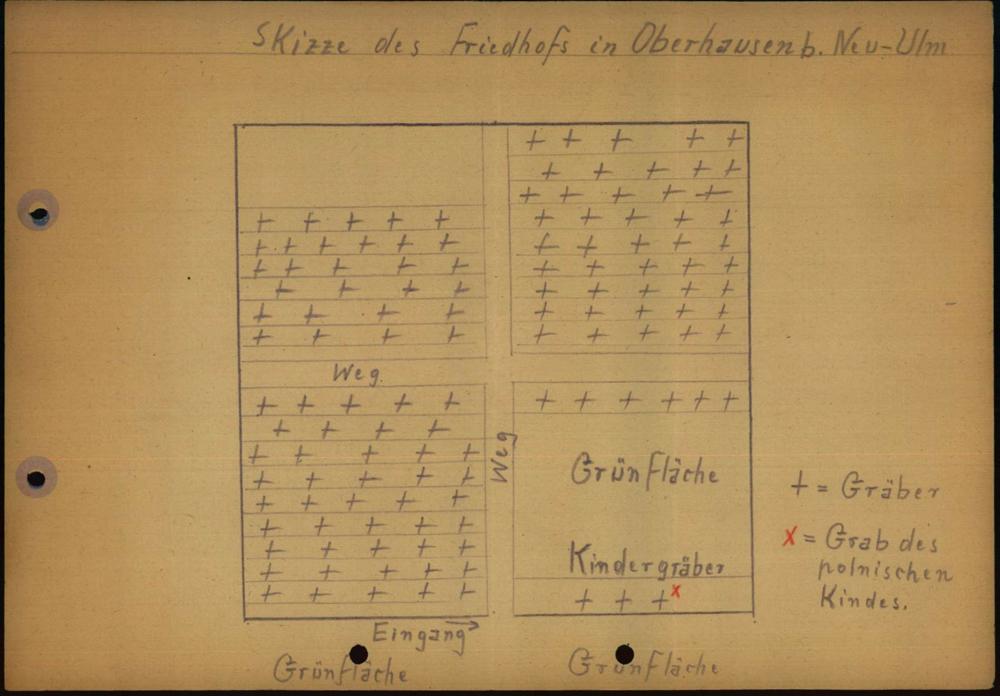 Skizze des Friedhofs in Oberhausen b. Neu-Ulm
Weg
Weg
Grünfläche
+ = Gräber
x = Grab des
polnischen
Kindes.
Kindergräber
Eingang →
Grünfläche
Grünfläche